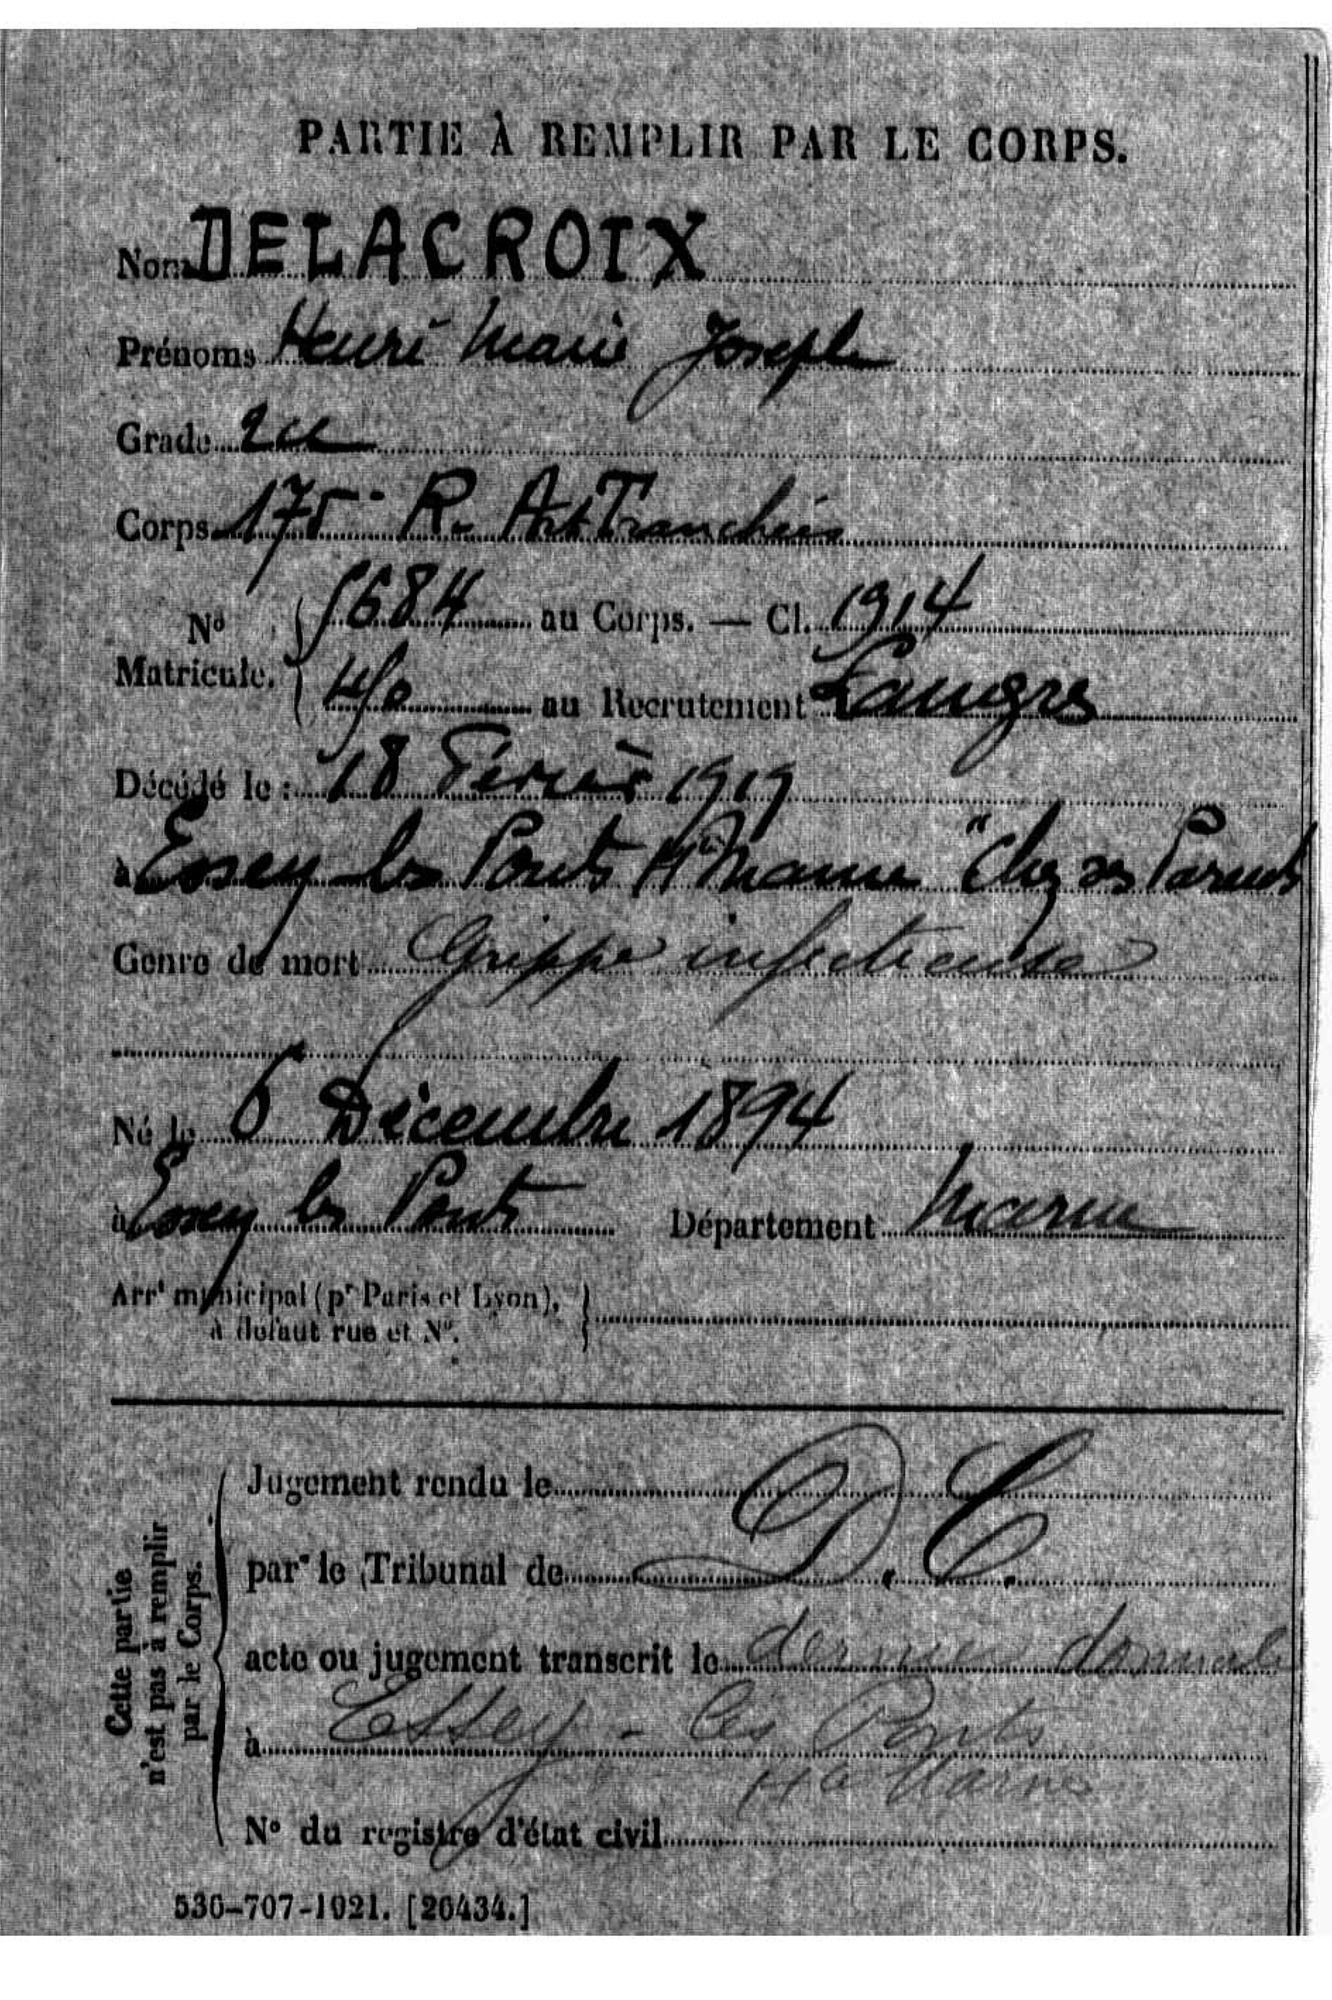 PARTIE À REMPLIR PAR LE CORPS.
Nom DELACROIX
Prénoms Henri Marie Joseph
Grade 2cl
Corps 175 R. Art Tranchées
No Matricule. 5684 au Corps. — Cl. 1914
au Recrutement Langres
Décédé le : 18 Février 1919
à Essey les Ponts Hte Marne "Chez ses Parents
Genre de mort Grippe infectieuse
Né le 6 Décembre 1894
à Essey les Ponts Département Marne
Arrt municipal (pr Paris et Lyon),
à défaut rue et No.
Cette partie
n'est pas à remplir
par le Corps.
Jugement rendu le D. C.
par le Tribunal de
acte ou jugement transcrit le dernier domicile
à Essey - les Ponts
Hte Marne
No du registre d'état civil
536-707-1921. [26434.]